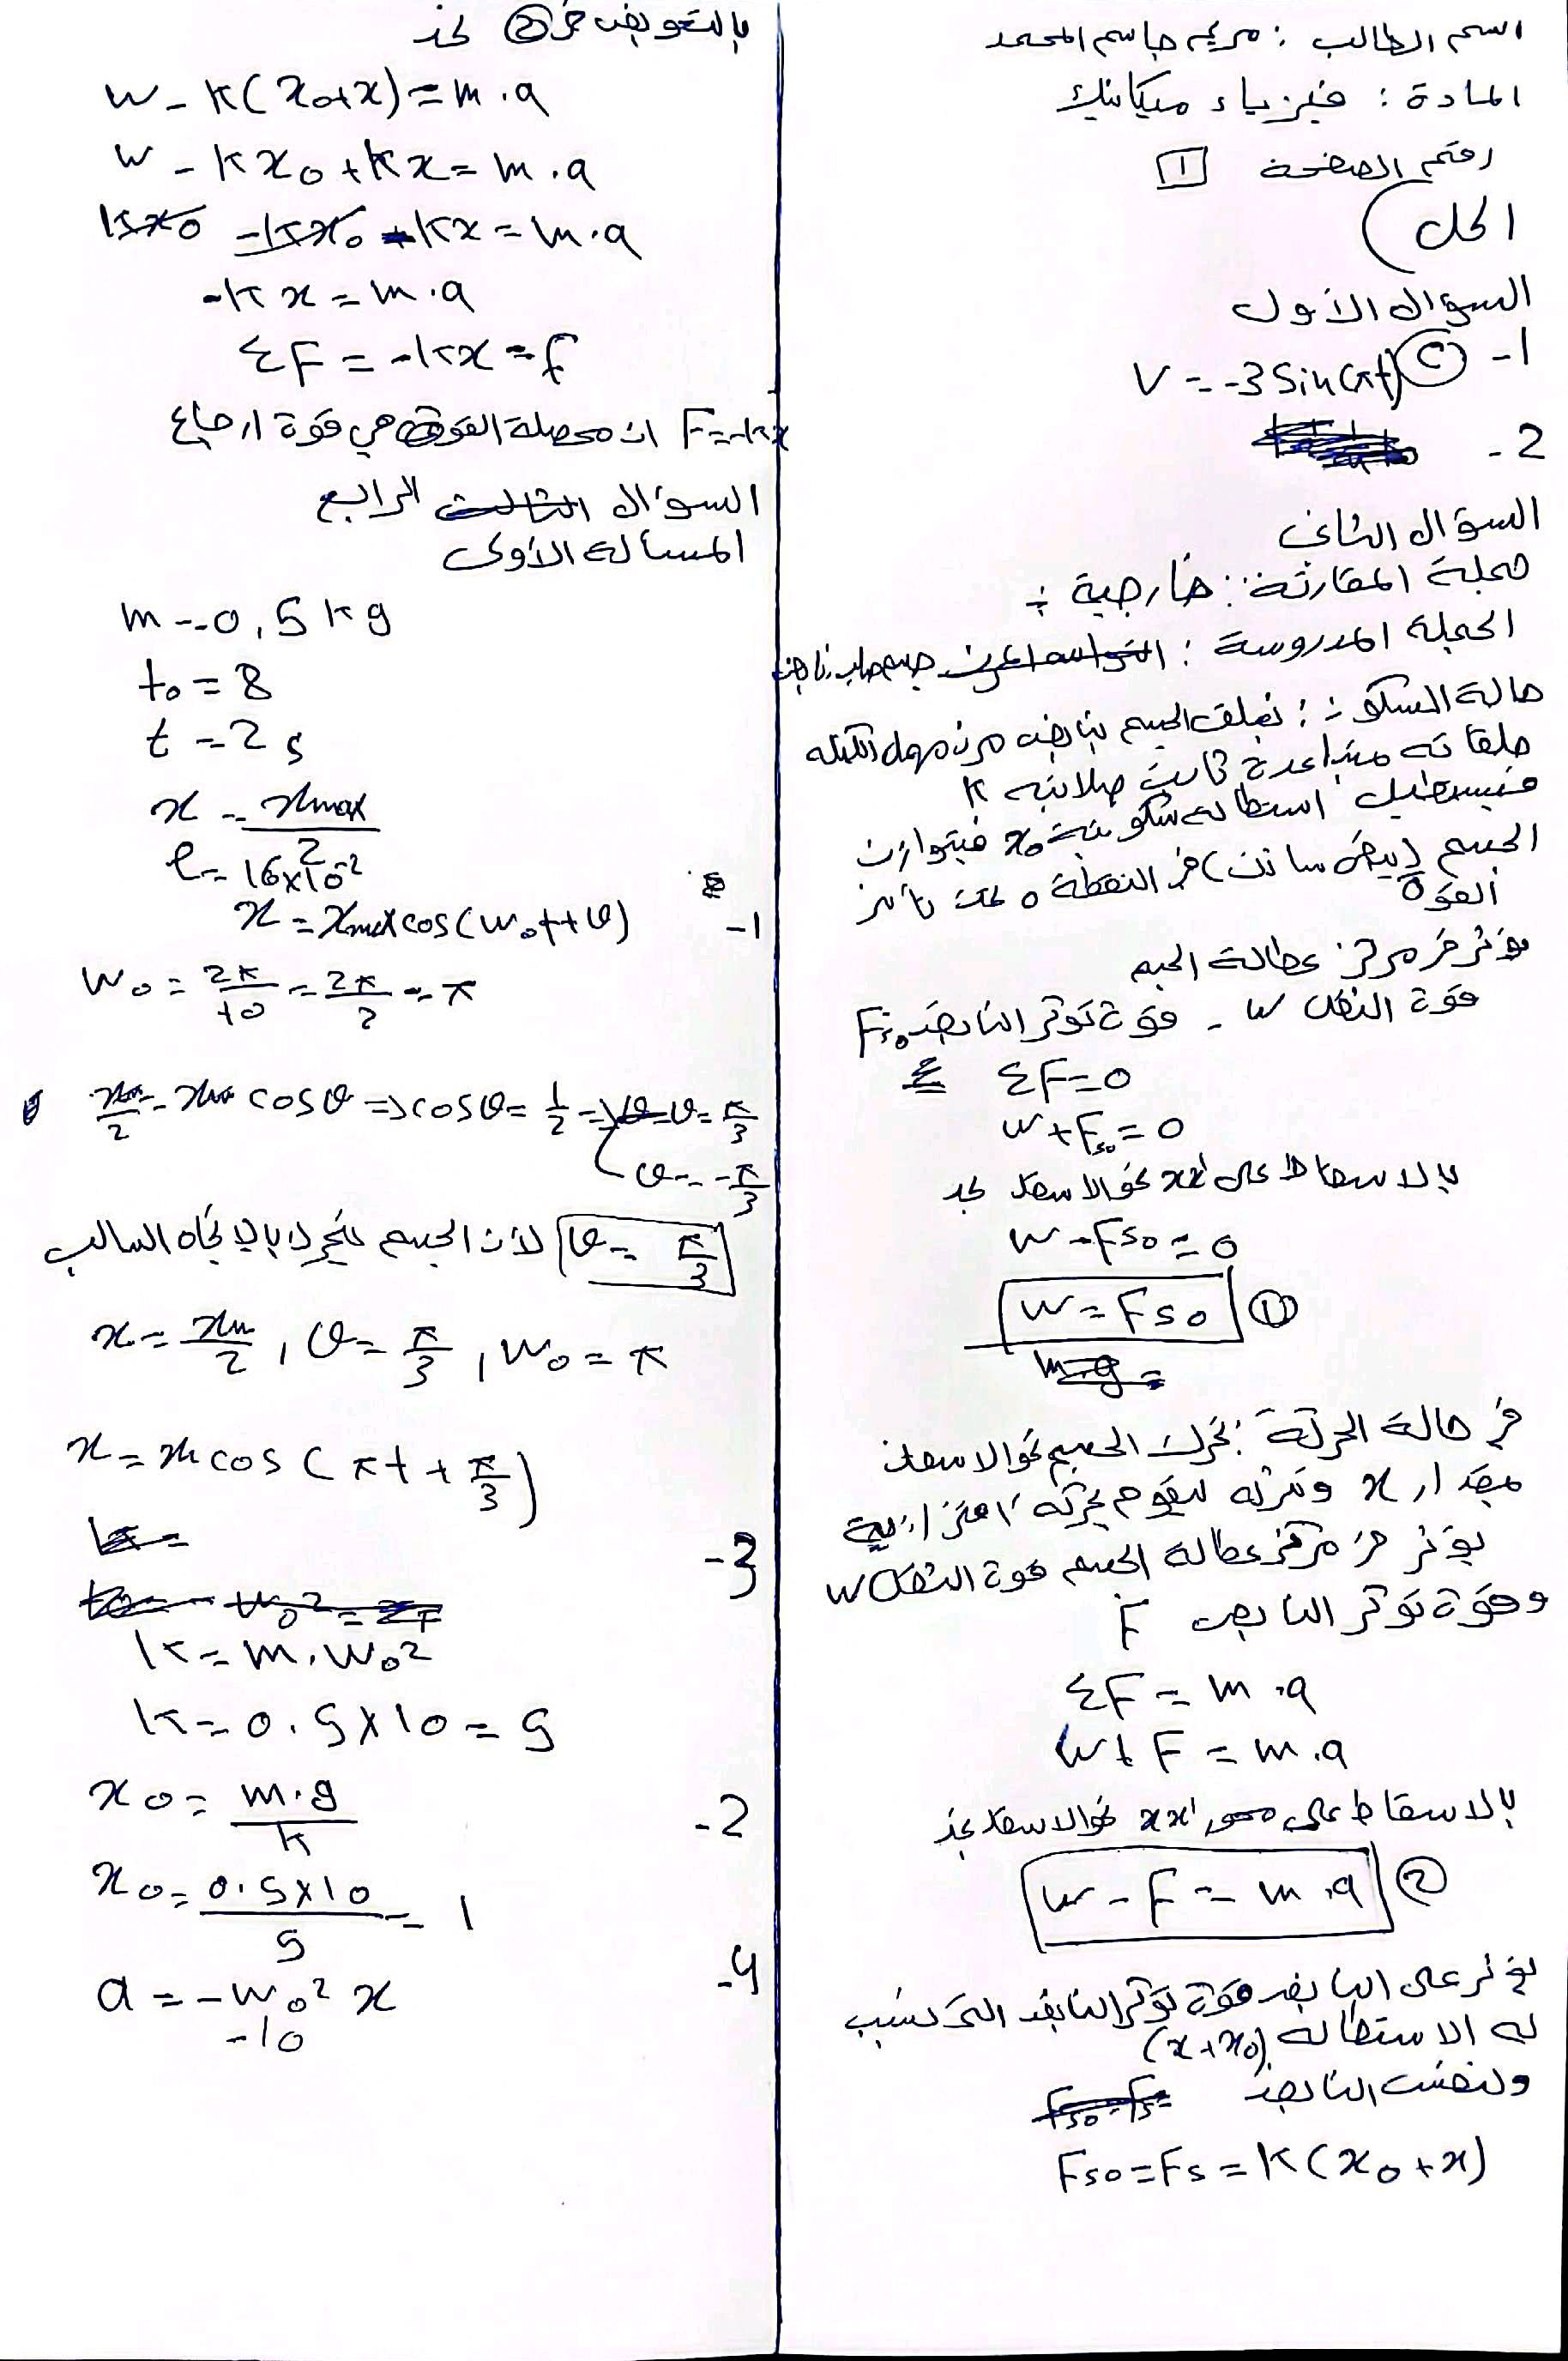 اسم الطالب : مريم جاسم المحمد
المادة : فيزياء ميكانيك
رقم الصفحة 1
الحل )
السؤال الأول
1- C V = -3 Sin(πt)
2-
السؤال الثاني
جملة المقارنة : خارجية :
الجملة المدروسة : جسم صلب نابض
حالة السكون : نعلق الجسم بنابض مرن مهمل الكتلة
حلقاته متباعدة ثابت صلابته K
فيستطيل استطالة سكونية x₀ فيتوازن
الجسم (يبقى ساكن) في النقطة o تحت تأثير
القوة
يؤثر في مركز عطالة الجسم
قوة الثقل W - قوة توتر النابض Fs₀
ΣF=0
W+Fs₀=0
بالاسقاط على xx' نحو الاسفل نجد
W-Fs₀=0
W=Fs₀ ①
m.g=
في حالة الحركة : نحرك الجسم نحو الاسفل
مقدار x ونتركه ليقوم بحركة اهتزازية
يؤثر في مركز عطالة الجسم قوة الثقل W
وقوة توتر النابض F
ΣF = m.a
W+F = m.a
بالاسقاط على محور xx' نحو الاسفل نجد
W - F = m.a ②
يؤثر على النابض قوة توتر النابض التي تسبب
له الاستطالة (x+x₀)
ولنفس النابض
Fs₀=Fs=K(x₀+x)
بالتعويض في ② نجد
W - K(x₀+x)=m.a
W - Kx₀+Kx=m.a
Kx₀ -Kx₀ -Kx=m.a
-Kx=m.a
ΣF = -Kx = F
F=-Kx ان محصلة القوة هي قوة ارجاع
السؤال الثالث الرابع
المسألة الأولى
m=0,5 Kg
t₀=8
t=2s
x = xmax/2
l=16x10⁻²
1- x=xmax cos(w₀t+φ)
w₀ = 2π/t₀ = 2π/2 = π
xm/2 = xm cosφ ⇒ cosφ = 1/2 ⇒ φ = π/3
φ = -π/3
φ = π/3 لأن الجسم يتحرك بالاتجاه السالب
x = xm/2 , φ = π/3 , w₀ = π
x = xm cos(πt + π/3)
K=
3- K=m.w₀²
K=0.5x10=5
2- x₀ = m.g/K
x₀ = 0.5x10/5 = 1
4- a=-w₀²x
-10